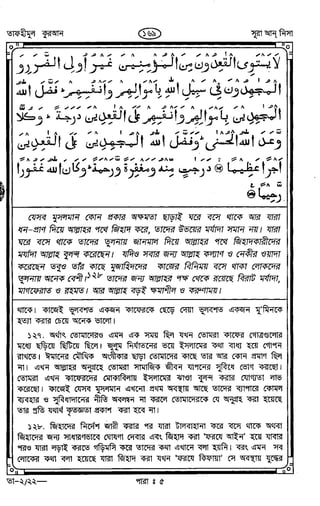 তাফহীমুল কুরআন
১৬৯
সূরা আন্ নিসা
لَا يَسْتَوِي الْقٰعِدُونَ مِنَ الْمُؤْمِنِينَ غَيْرُ أُولِي الضَّرَرِ وَ
الْمُجٰهِدُونَ فِي سَبِيلِ اللهِ بِأَمْوَالِهِمْ وَأَنْفُسِهِمْ ، فَضَّلَ اللهُ
الْمُجٰهِدِينَ بِأَمْوَالِهِمْ وَأَنْفُسِهِمْ عَلَى الْقٰعِدِينَ دَرَجَةً ، وَكُلًّا
وَعَدَ اللهُ الْحُسْنٰى ، وَفَضَّلَ اللهُ الْمُجٰهِدِينَ عَلَى الْقٰعِدِينَ
أَجْرًا عَظِيمًا ۝ دَرَجٰتٍ مِنْهُ وَمَغْفِرَةً وَرَحْمَةً ، وَكَانَ اللهُ غَفُورًا
رَحِيمًا ۝
যেসব মুসলমান কোন প্রকার অক্ষমতা ছাড়াই ঘরে বসে থাকে আর যারা
ধন-প্রাণ দিয়ে আল্লাহর পথে জিহাদ করে, তাদের উভয়ের মর্যাদা সমান নয়। যারা
ঘরে বসে থাকে তাদের তুলনায় জানমাল দিয়ে আল্লাহর পথে জিহাদকারীদের
মর্যাদা আল্লাহ বুলন্দ করেছেন। যদিও সবার জন্য আল্লাহ কল্যাণ ও নেকীর ওয়াদা
করেছেন তবুও তাঁর কাছে মুজাহিদদের কাজের বিনিময় বসে থাকা লোকদের
তুলনায় অনেক বেশী।১২৮ তাদের জন্য আল্লাহর পক্ষ থেকে রয়েছে বিরাট মর্যাদা,
মাগফেরাত ও রহমত। আর আল্লাহ বড়ই ক্ষমাশীল ও করুণাময়।
থাকে। কাজেই ভুলবশত একজন কাফেরকে ছেড়ে দেয়া ভুলবশত একজন মু'মিনকে
হত্যা করার চেয়ে অনেক ভালো।
১২৭. অর্থাৎ তোমাদেরও এমন এক সময় ছিল যখন তোমরা কাফের গোত্রগুলোর
মধ্যে ছড়িয়ে ছিটিয়ে ছিলে। জুলুম নির্যাতনের ভয়ে ইসলামের কথা বাধ্য হয়ে গোপন
রাখতে। ঈমানের মৌখিক অংগীকার ছাড়া তোমাদের কাছে তার আর কোন প্রমাণ ছিল
না। এখন আল্লাহর অনুগ্রহে তোমরা সামাজিক জীবন যাপনের সুবিধে ভোগ করছো।
তোমরা এখন কাফেরদের মোকাবিলায় ইসলামের ঝাণ্ডা বুলন্দ করার যোগ্যতা লাভ
করেছো। কাজেই যেসব মুসলমান এখনো প্রথম অবস্থায় আছে তাদের ব্যাপারে কোমল
ব্যবহার ও সুবিধাদানের নীতি অবলম্বন না করলে তোমাদেরকে যে অনুগ্রহ করা হয়েছে
তার প্রতি যথার্থ কৃতজ্ঞতা প্রকাশ করা হবে না।
১২৮. জিহাদের নির্দেশ জারী করার পর যারা টালবাহানা করে বসে থাকে অথবা
জিহাদের জন্য সাধারণভাবে ঘোষণা দেবার এবং জিহাদ করা 'ফরযে আইন' হয়ে যাবার
পরও যারা লড়াই করতে গড়িমসি করে তাদের কথা এখানে বলা হয়নি। বরং এমন সব
লোকের কথা বলা হয়েছে যারা জিহাদ করা যখন 'ফরযে কিফায়া' সে অবস্থায় যুদ্ধের
তা-২/২২—
পারা ঃ ৫